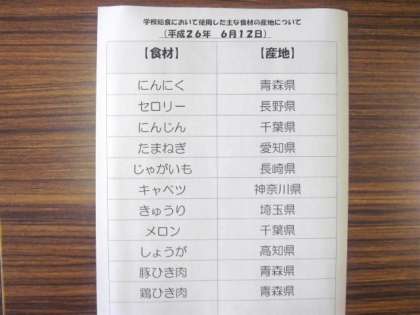 学校給食において使用した主な食材の産地について
(平成26年 6月12日)
【食材】 【産地】
にんにく 青森県
セロリー 長野県
にんじん 千葉県
たまねぎ 愛知県
じゃがいも 長崎県
キャベツ 神奈川県
きゅうり 埼玉県
メロン 千葉県
しょうが 高知県
豚ひき肉 青森県
鶏ひき肉 青森県